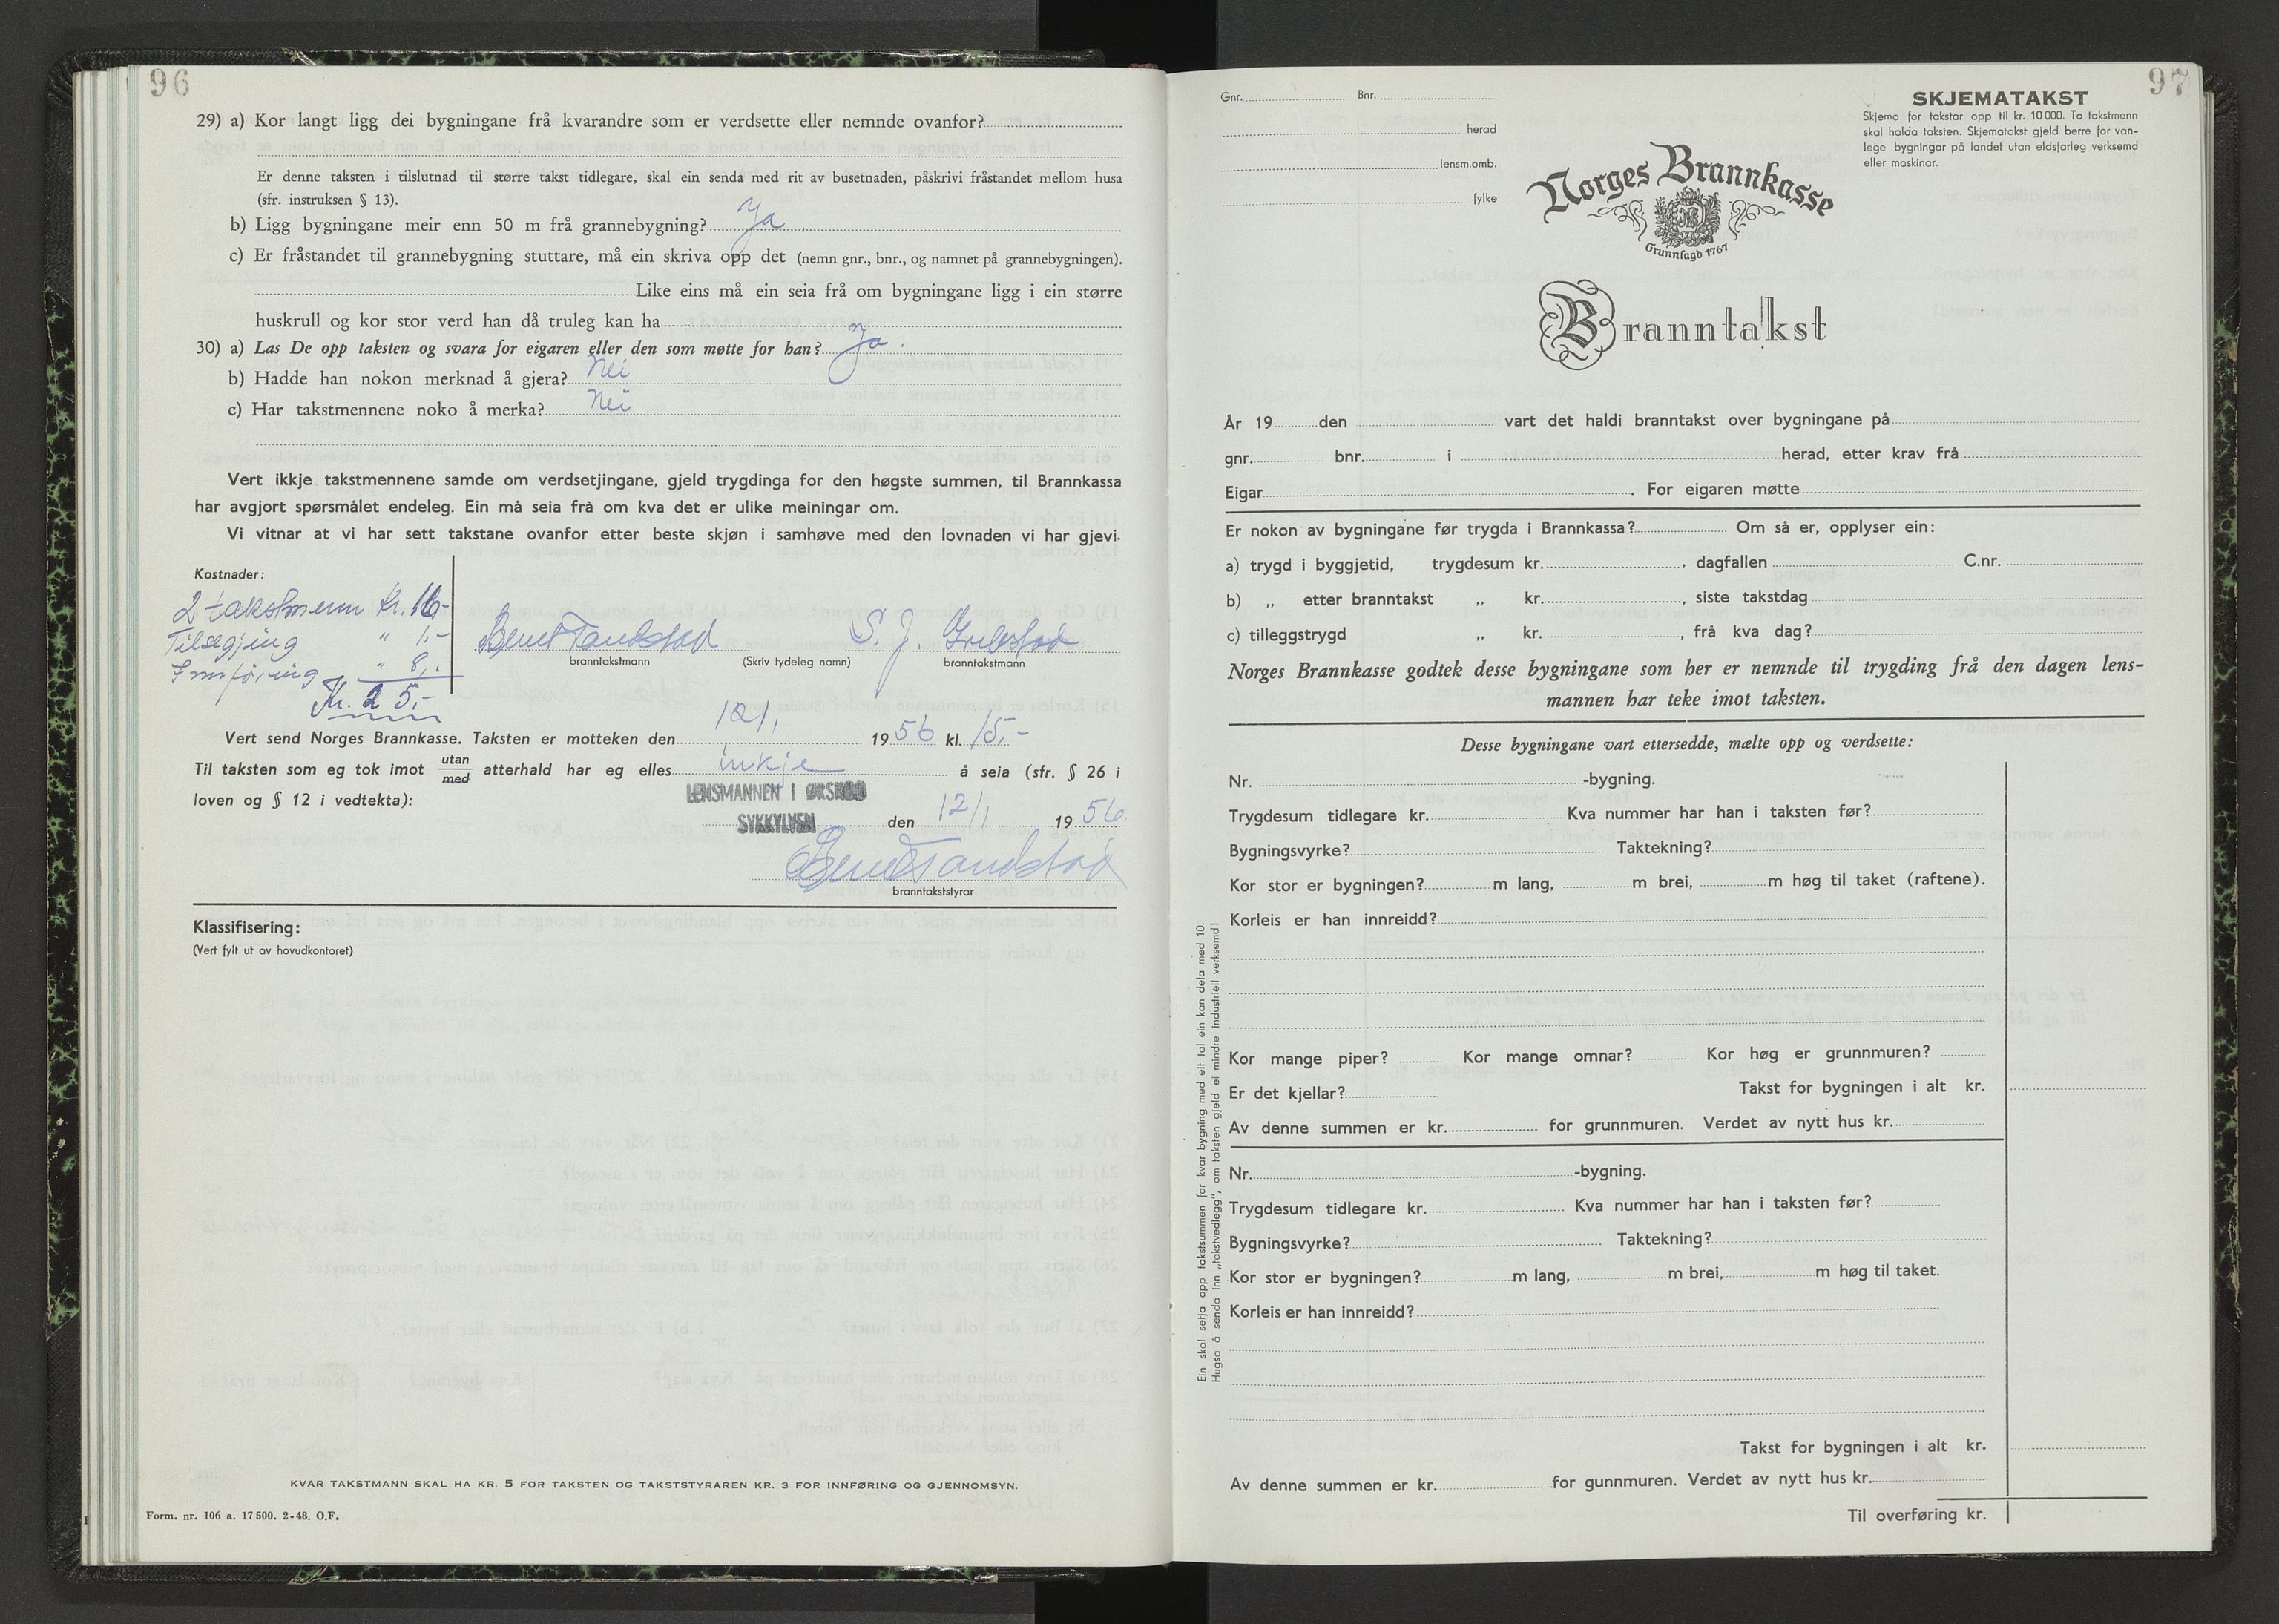 96
29) a) Kor langt ligg dei bygningane frå kvarandre som er verdsette eller nemnde ovanfor?
Er denne taksten i tilslutnad til større takst tidlegare, skal ein senda med rit av busetnaden, påskrivi fråstandet mellom husa
(sfr. instruksen § 13).
b) Ligg bygningane meir enn 50 m frå grannebygning? Ja
c) Er fråstandet til grannebygning stuttare, må ein skriva opp det (nemn gnr., bnr., og namnet på grannebygningen).
Like eins må ein seia frå om bygningane ligg i ein større
huskrull og kor stor verd han då truleg kan ha
30) a) Las De opp taksten og svara for eigaren eller den som møtte for han? Ja.
b) Hadde han nokon merknad å gjera? Nei
c) Har takstmennene noko å merka? Nei
Vert ikkje takstmennene samde om verdsetjingane, gjeld trygdinga for den høgste summen, til Brannkassa
har avgjort spørsmålet endeleg. Ein må seia frå om kva det er ulike meiningar om.
Vi vitnar at vi har sett takstane ovanfor etter beste skjøn i samhøve med den lovnaden vi har gjevi.
Kostnader:
2 takstmenn kr. 16-
Tilsegjing " 1.-
Innføring " 8.-
Kr. 25.-
Bernt Tandstad S. J. Grebstad
branntakstmann (Skriv tydeleg namn) branntakstmann
Vert send Norges Brannkasse. Taksten er motteken den 12/1 1956 kl. 15.-
Til taksten som eg tok imot utan/med atterhald har eg elles inkje å seia (sfr. § 26 i
loven og § 12 i vedtekta):
LENSMANNEN I ØRSKOG
SYKKYLVEN den 12/1 1956.
Bernt Tandstad
branntakststyrar
Klassifisering:
(Vert fylt ut av hovudkontoret)
KVAR TAKSTMANN SKAL HA KR. 5 FOR TAKSTEN OG TAKSTSTYRAREN KR. 3 FOR INNFØRING OG GJENNOMSYN.
Form. nr. 106 a. 17 500. 2-48. O.F.
97
Gnr. Bnr.
herad
lensm.omb.
fylke
SKJEMATAKST
Skjema for takstar opp til kr. 10 000. To takstmenn
skal halda taksten. Skjematakst gjeld berre for van-
lege bygningar på landet utan eldsfarleg verksemd
eller maskinar.
Norges Brannkasse
Grunnlagd 1767
Branntakst
År 19 den vart det haldi branntakst over bygningane på
gnr. bnr. i herad, etter krav frå
Eigar . For eigaren møtte
Er nokon av bygningane før trygda i Brannkassa? Om så er, opplyser ein:
a) trygd i byggjetid, trygdesum kr. , dagfallen C.nr.
b) „ etter branntakst „ kr. , siste takstdag
c) tilleggstrygd „ kr. , frå kva dag?
Norges Brannkasse godtek desse bygningane som her er nemnde til trygding frå den dagen lens-
mannen har teke imot taksten.
Desse bygningane vart ettersedde, mælte opp og verdsette:
Nr. -bygning.
Trygdesum tidlegare kr. Kva nummer har han i taksten før?
Bygningsvyrke? Taktekning?
Kor stor er bygningen? m lang, m brei, m høg til taket (raftene).
Korleis er han innreidd?
Kor mange piper? Kor mange omnar? Kor høg er grunnmuren?
Er det kjellar? Takst for bygningen i alt kr.
Av denne summen er kr. for grunnmuren. Verdet av nytt hus kr.
Nr. -bygning.
Trygdesum tidlegare kr. Kva nummer har han i taksten før?
Bygningsvyrke? Taktekning?
Kor stor er bygningen? m lang, m brei, m høg til taket.
Korleis er han innreidd?
Takst for bygningen i alt kr.
Av denne summen er kr. for gunnmuren. Verdet av nytt hus kr.
Til overføring kr.
Ein skal setja opp takstsummen for kvar bygning med eit tal ein kan dela med 10.
Hugsa å senda inn „takstvedlegg", om taksten gjeld ei mindre Industriell verksemd!